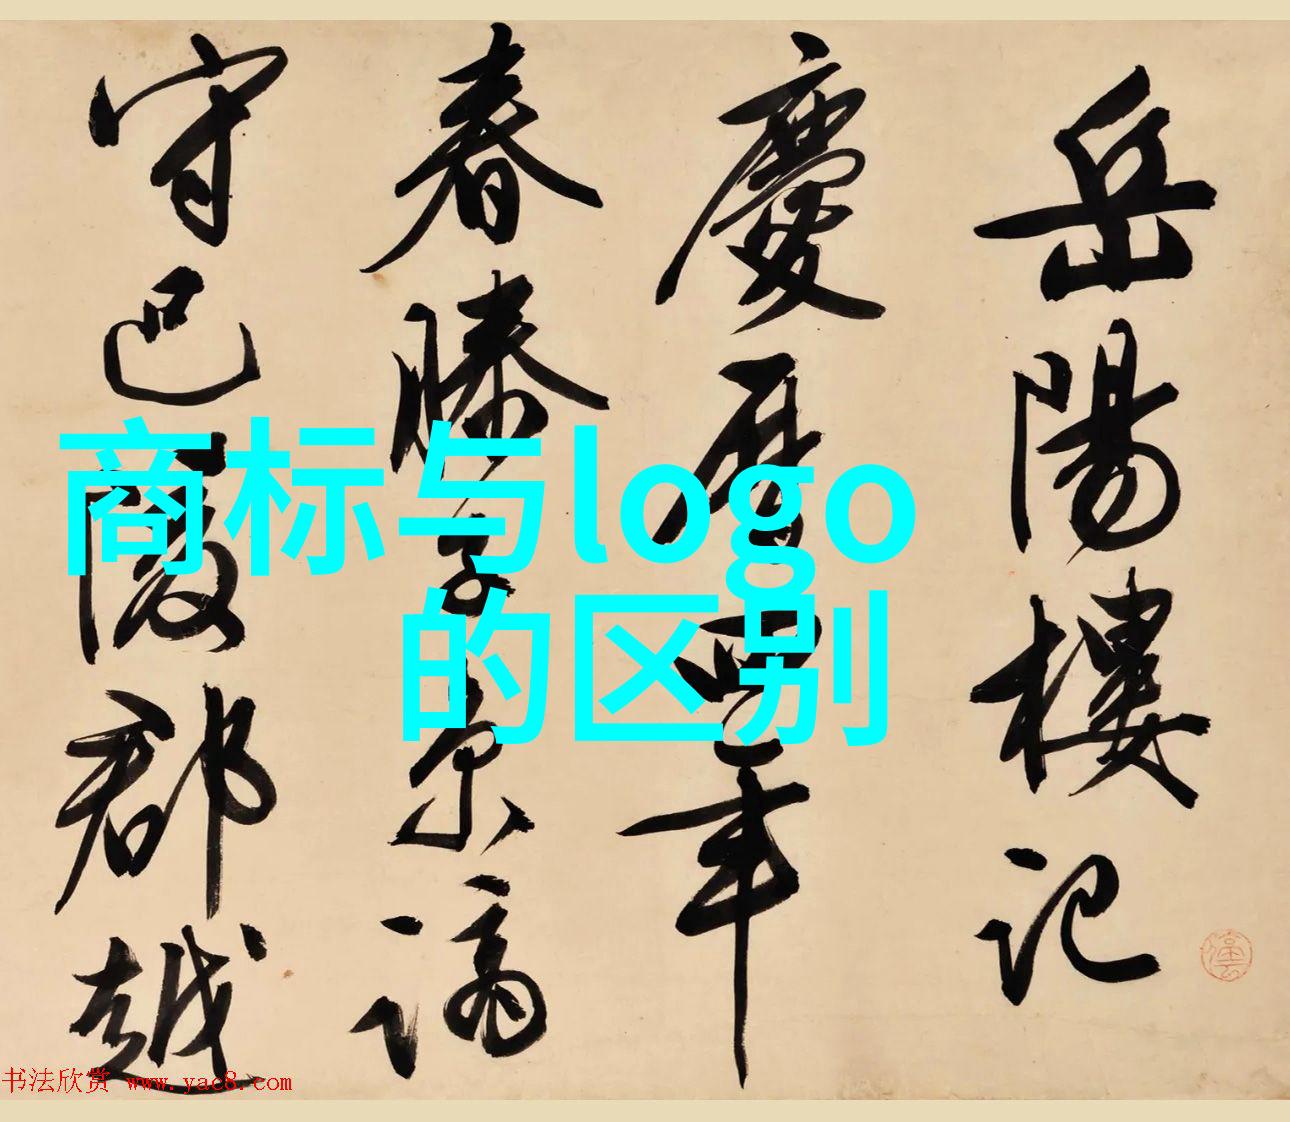 岳陽樓記
慶曆四年
春滕子京謫
守巴陵郡越
商标与logo
的区别
书法欣赏 www.yac8.com